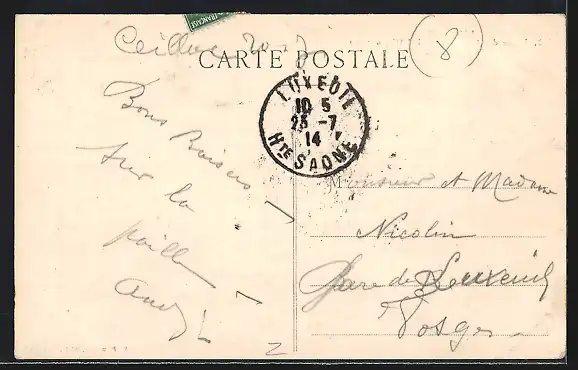 CARTE POSTALE
8
LUXEUIL
10 5
23 -7
14
HTE SAONE
Bons Baisers
sur la
paille
Monsieur et Madame
Nicolin
Gare de Luxeuil
Vosges
FRANÇAISE